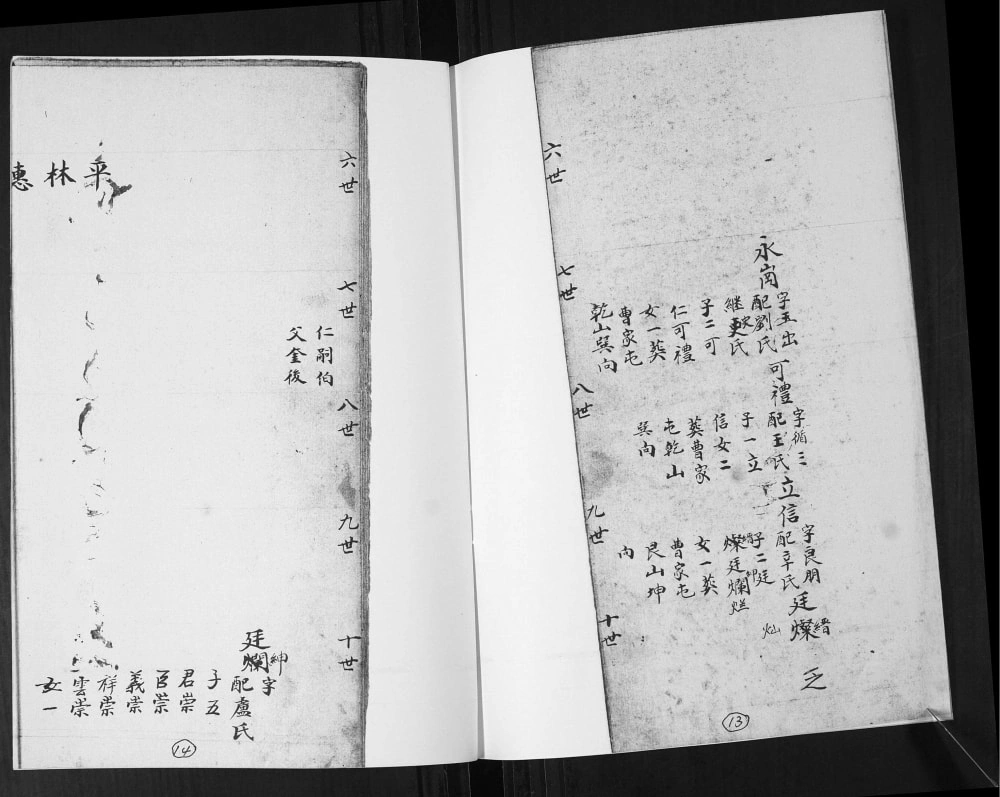 六世
七世
八世
九世
十世
永崗
字玉出
配劉氏
继室吏氏
子二可
仁可禮
女一葬
曹家屯
乾山巽向
可禮
字循三
配王氏
子一立
信女二
葬曹家
屯乾山
巽向
立信
字良朋
配辛氏
子二廷
燦廷爛
女一葬
曹家屯
艮山坤
向
廷燦
縉
乏
13
六世
七世
八世
九世
十世
仁嗣伯
父奎後
廷爛
紳字
配盧氏
子五
君崇
臣崇
義崇
祥崇
雲崇
女一
林
惠
14